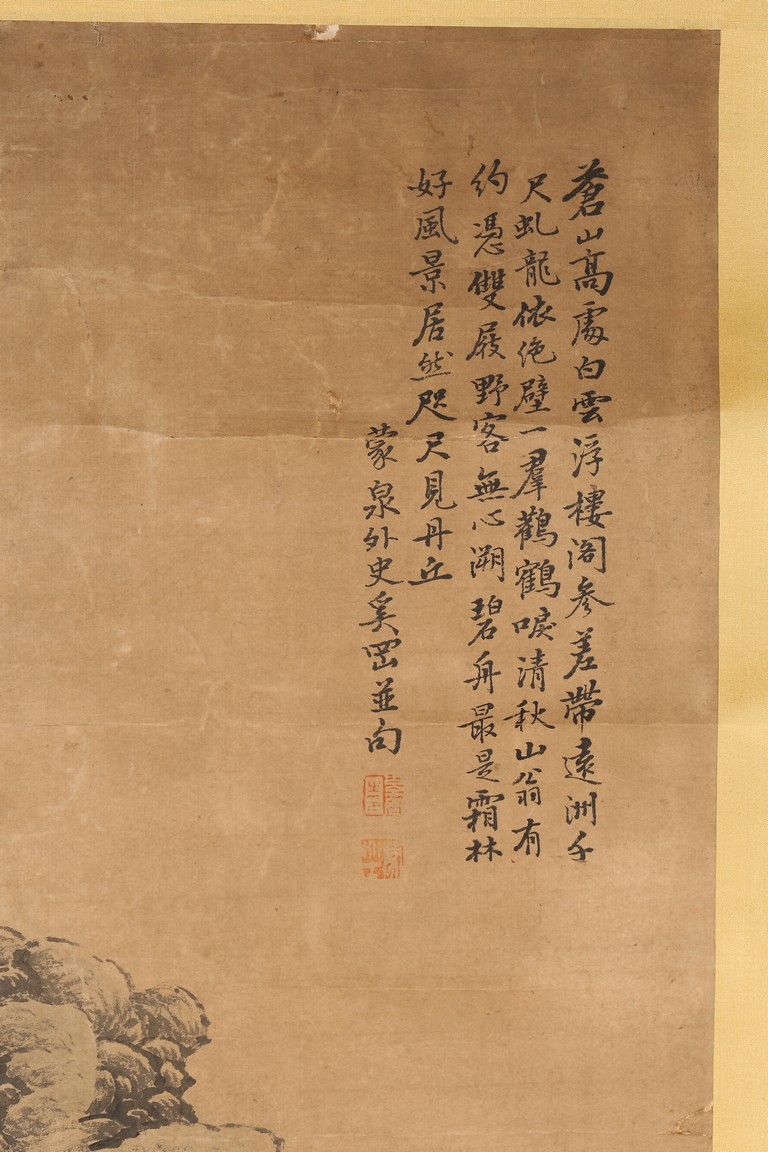 蒼山高處白雲浮樓閣參差帶遠洲千
尺虬龍依绝壁一羣鸛鶴唳清秋山翁有
約憑雙屐野客無心溯碧舟最是霜林
好風景居然咫尺見丹丘
蒙泉外史奚岡並句